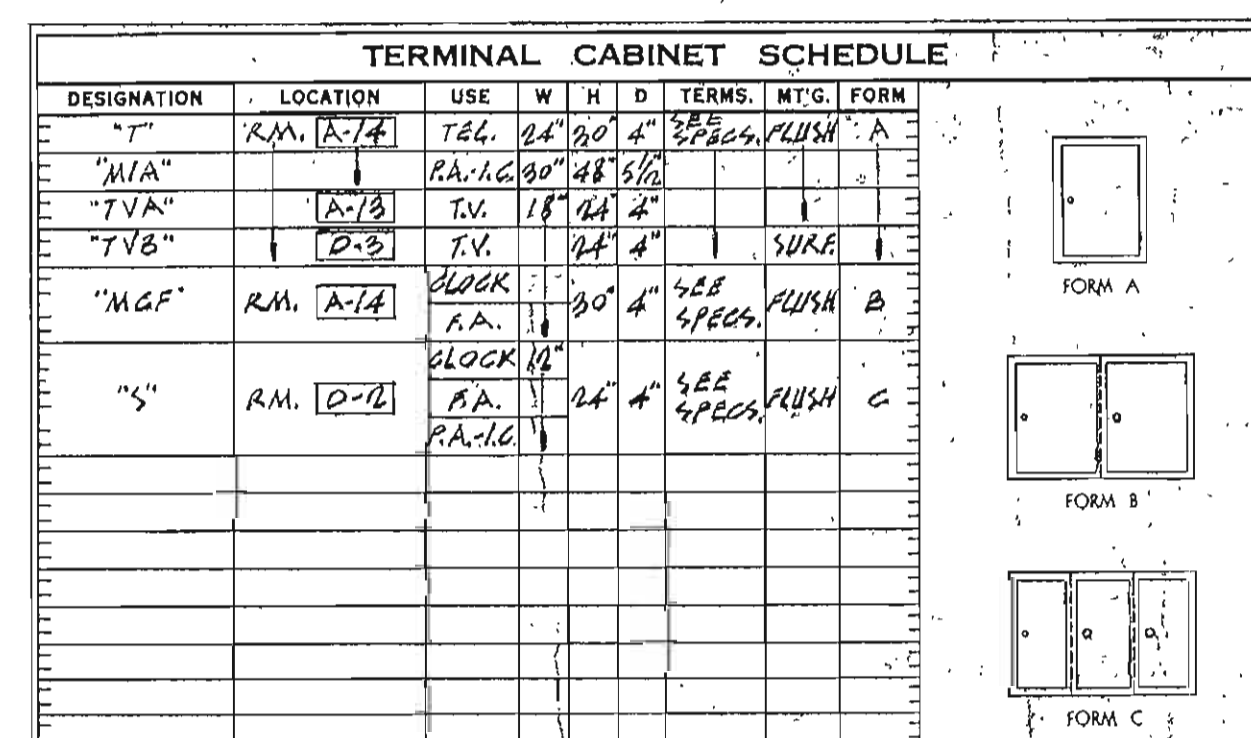 TERMINAL CABINET SCHEDULE
DESIGNATION LOCATION USE W H D TERMS. MT'G. FORM
"T" RM. A-14 TEL. 24" 30" 4" SEE SPECS. FLUSH A
"M/A" P.A.-I.C. 30" 48" 5 1/2"
"TVA" A-13 T.V. 18" 24" 4"
"TVB" D-3 T.V. 24" 4" SURF.
"MCF" RM. A-14 CLOCK 30" 4" SEE SPECS. FLUSH B
F.A.
"S" RM. D-2 CLOCK 12" 24" 4" SEE SPECS. FLUSH C
F.A.
P.A.-I.C.
FORM A
FORM B
FORM C